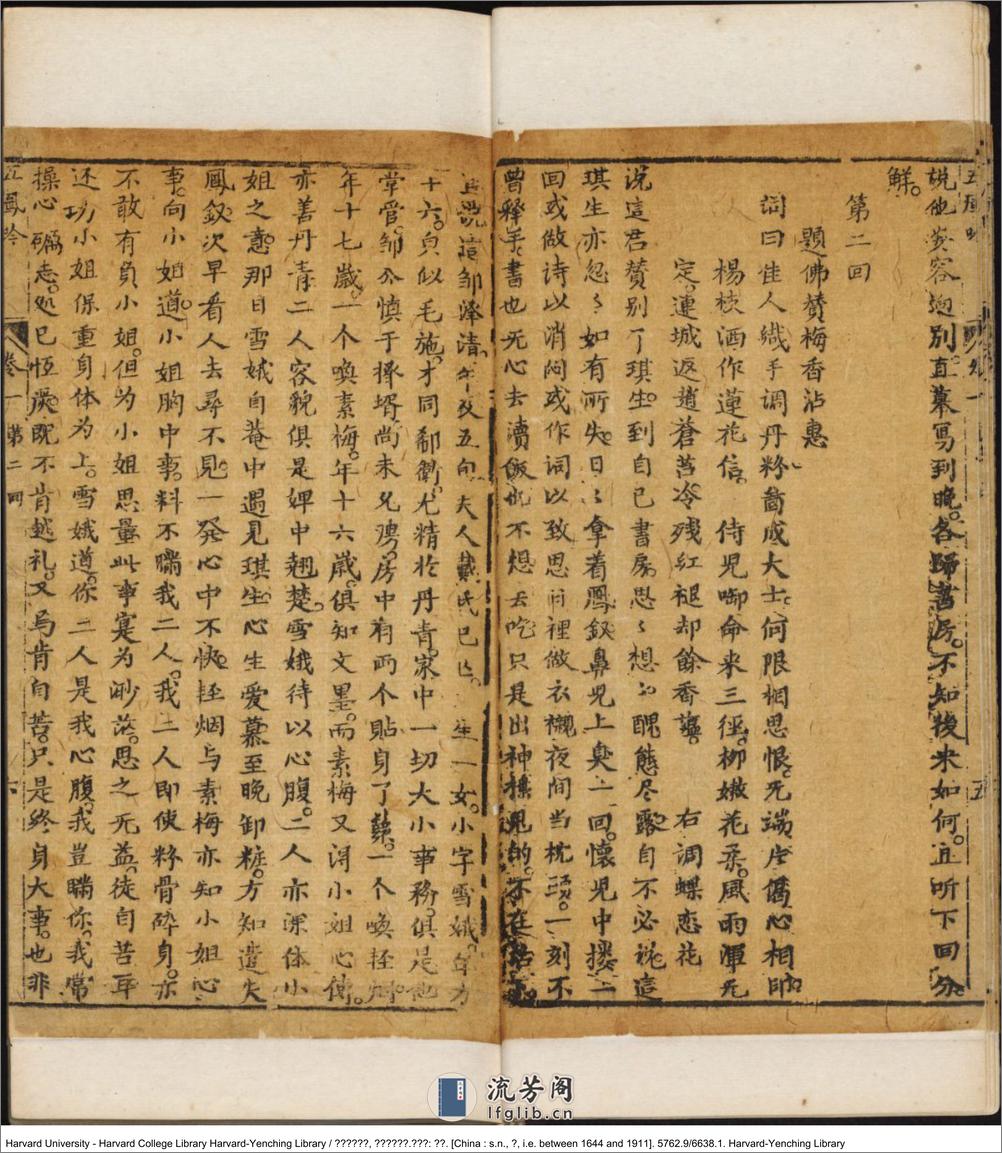 說他姿容迥別直摹寫到晚各歸書房不知後来如何且听下回分
觧
第二回
題佛赞梅香沾惠
詞曰佳人纖手调丹粉啚成大士何限相思恨无端片偈心相印
楊枝洒作莲花信 侍児啣命来三徑柳嫩花柔風雨渾无
定連城返趙蒼苔冷殘紅褪却餘香 右調蝶恋花
说這君赞别了琪生到自己書房思〻想〻醜態尽露自不必说這
琪生亦忽〻如有所失日〻拿着鳳釵鼻児上臭一回懷児中摟一
回或做诗以消闷或作词以致思日裡做衣襯夜间当枕头一刻不
曾释手書也无心去讀飯也不想去吃只是出神搗鬼的不在话下
且说這邹泽清年及五旬夫人戴氏已亡生一女小字雪娥年方
十六貌似毛施才同郗衛尤精於丹青家中一切大小事務俱是他
掌管邹公慎于擇壻尚未兄聘房中有两个貼身丫鬟一个喚轻烟
年十七歳一个喚素梅年十六歳俱知文墨而素梅又淂小姐心傳
亦善丹青二人容貌俱是婢中翹楚雪娥待以心腹二人亦深体小
姐之意那日雪娥自菴中遇見琪生心生爱慕至晚卸粧方知遺失
鳳釵次早着人去尋不見一発心中不快轻烟与素梅亦知小姐心
事向小姐道小姐胸中事料不瞒我二人我二人即使粉骨碎身亦
不敢有負小姐但为小姐思量此事寔为渺茫思之无益徒自苦耳
还劝小姐保重身体为上雪娥道你二人是我心腹我豈瞒你我常
操心礪志处已恆嚴既不肯越礼又烏肯自苦只是终身大事也非
五鳳吟
卷一
第二回
六
五